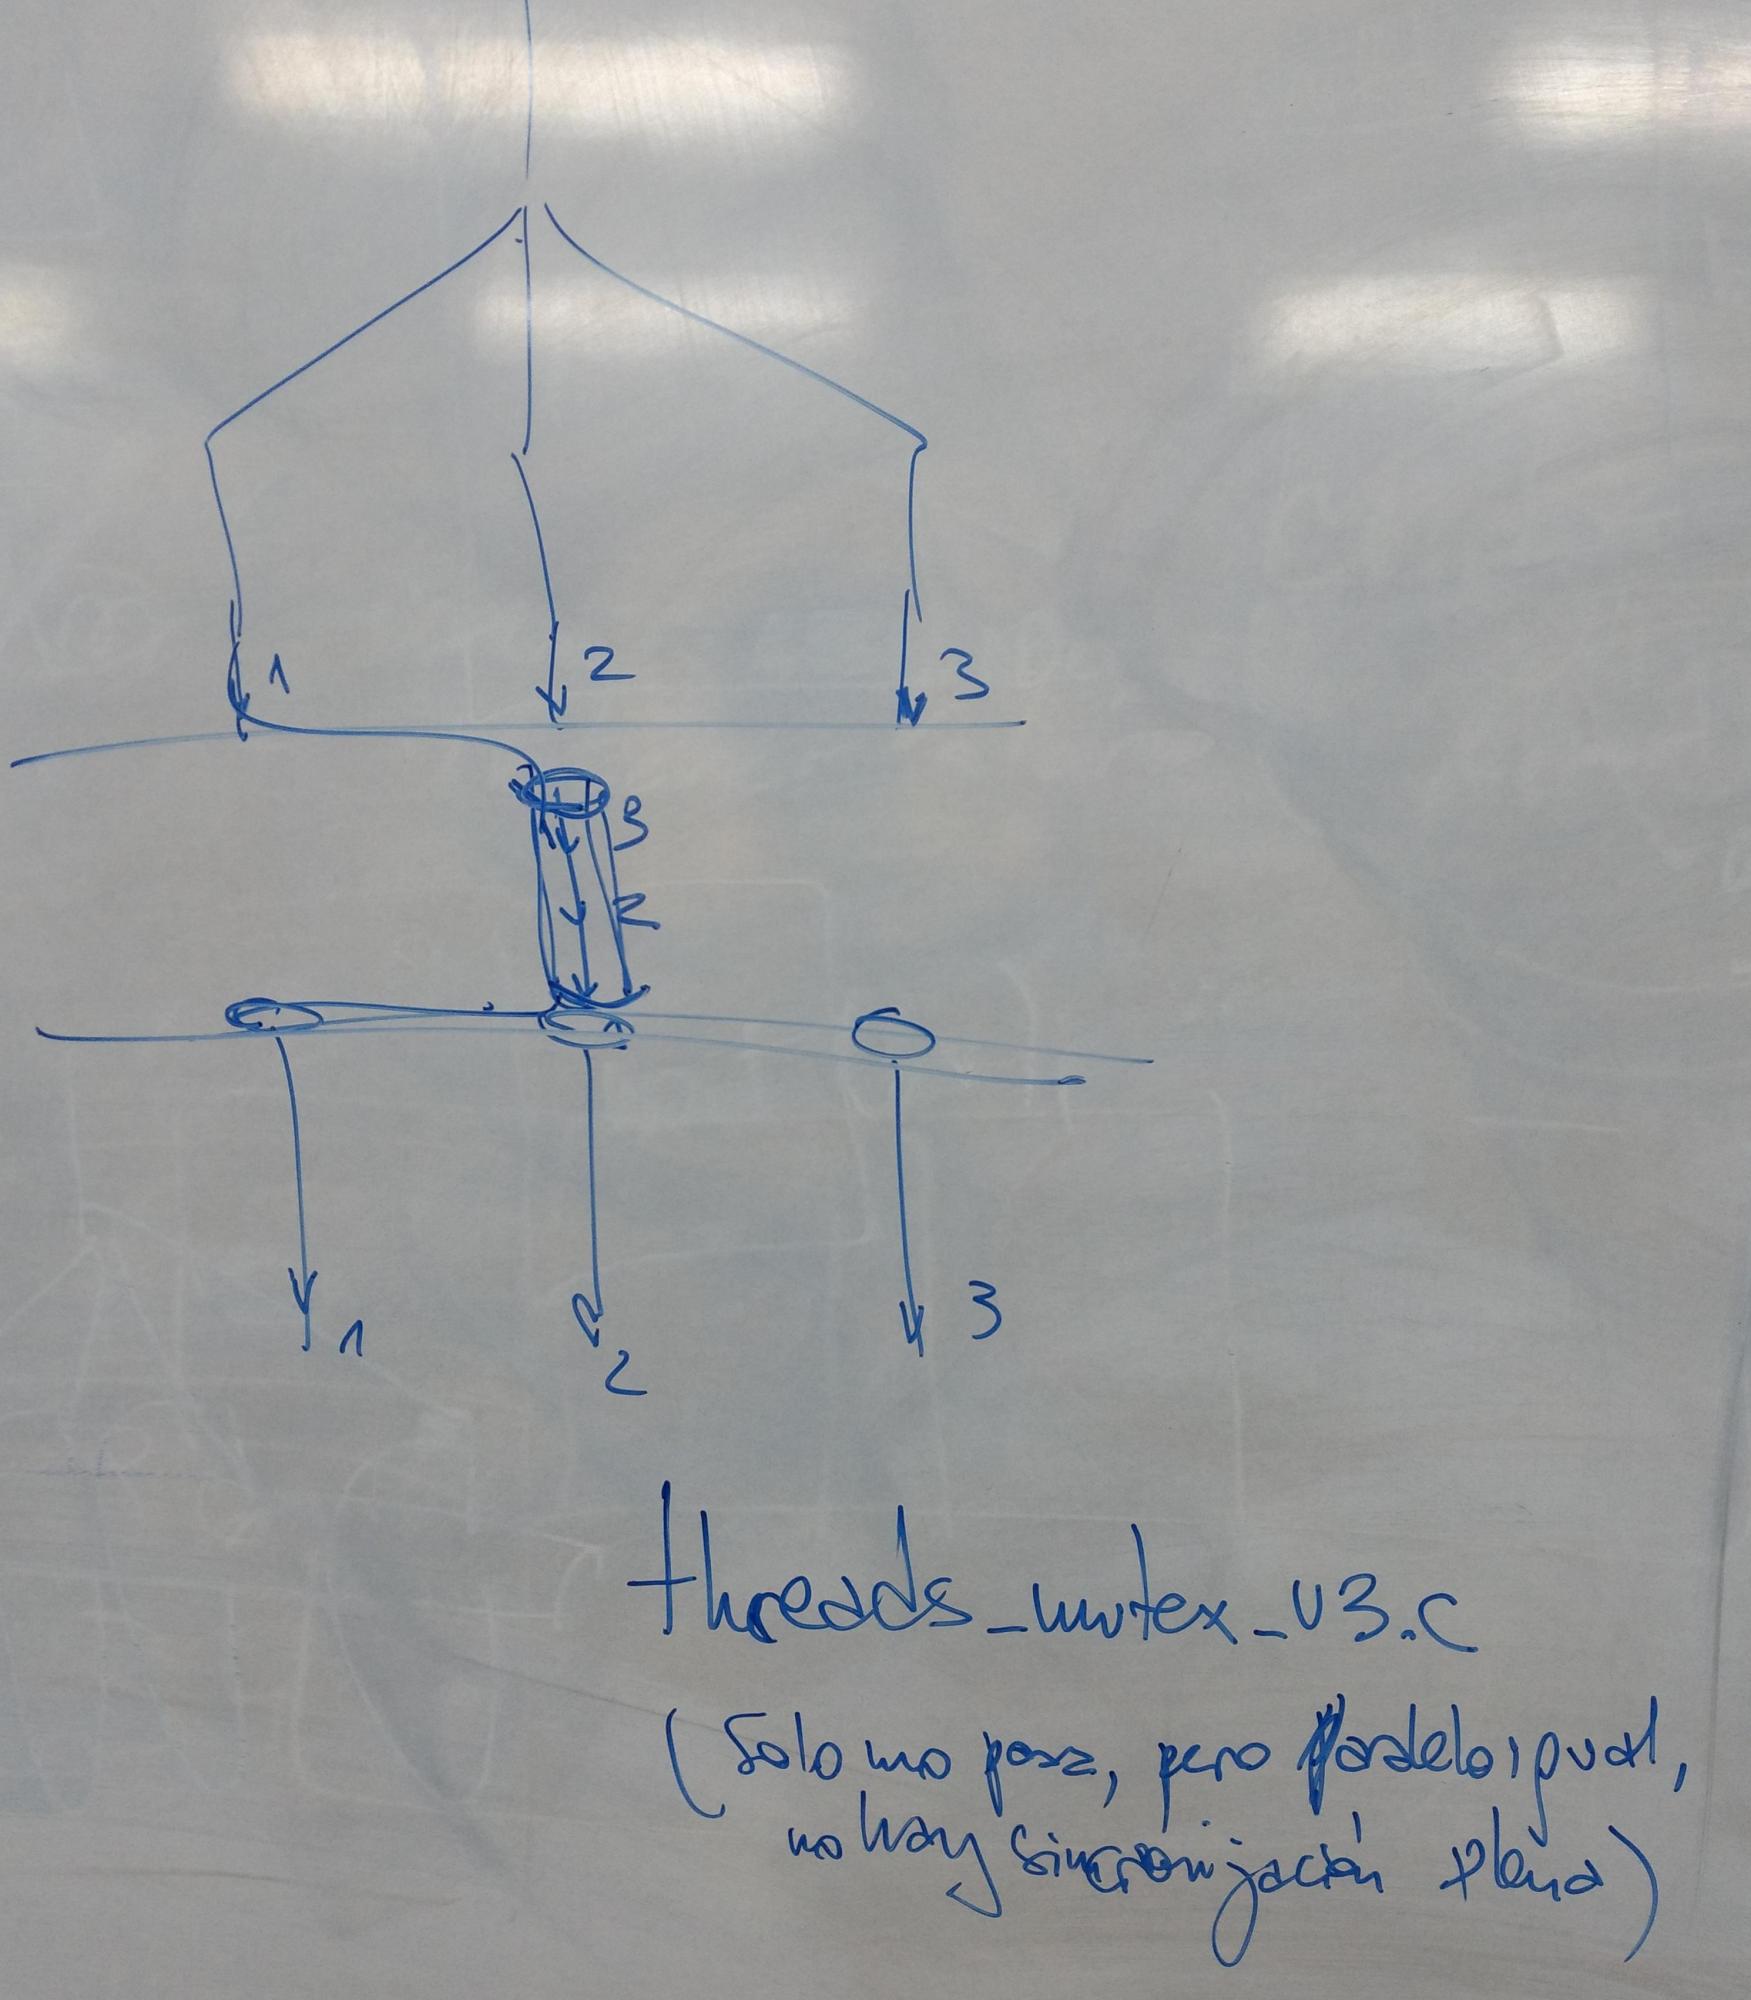 1 2 3
3
2
1
2
3
threads_mutex_v3.c
(Solo uno pasa, pero Paralelo igual,
no hay sincronización plena)